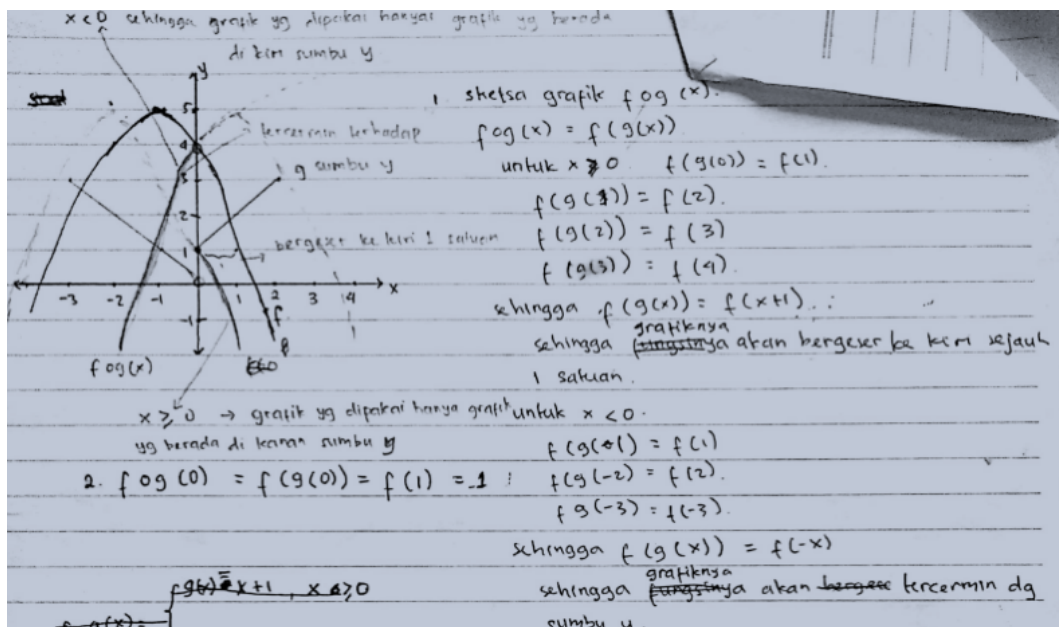 x < 0 sehingga grafik yg dipakai hanya grafik yg berada
di kiri sumbu y
y
5
4
3
2
1
0
-1
-3 -2 -1 1 2 3 4 x
tercermin terhadap
sumbu y
g
bergeser ke kiri 1 satuan
f
fog(x)
x ≥ 0 → grafik yg dipakai hanya grafik
yg berada di kanan sumbu y
2. fog(0) = f(g(0)) = f(1) = 1
g(x) = x+1 , x ≥ 0
f g(x) =
1. sketsa grafik fog(x).
fog(x) = f(g(x))
untuk x ≥ 0 f(g(0)) = f(1).
f(g(1)) = f(2).
f(g(2)) = f(3)
f(g(3)) = f(4).
sehingga f(g(x)) = f(x+1).
sehingga grafiknya akan bergeser ke kiri sejauh
1 satuan.
untuk x < 0.
f(g(-1) = f(1)
f(g(-2) = f(2).
f g(-3) = f(-3).
sehingga f(g(x)) = f(-x)
sehingga grafiknya akan tercermin dg
sumbu y